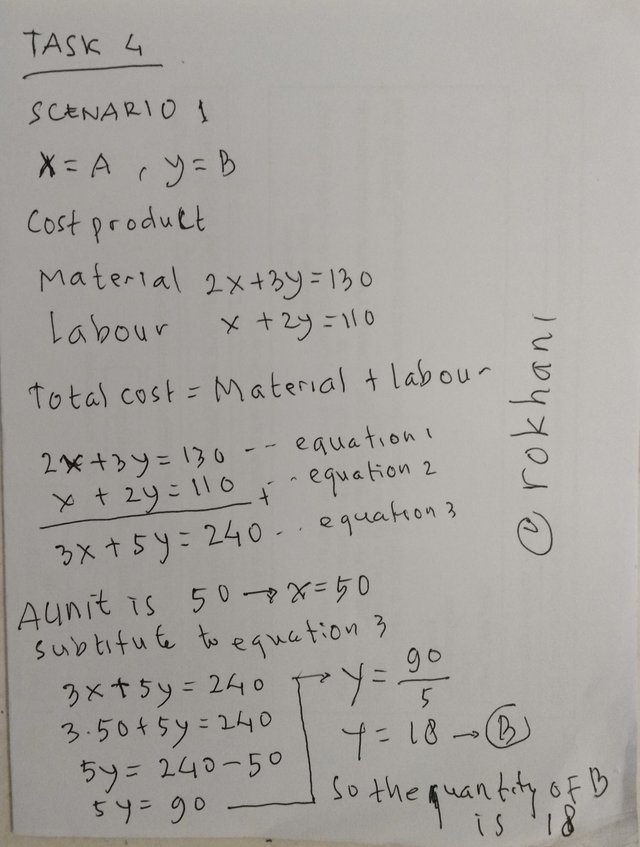 TASK 4
SCENARIO 1
X = A , y = B
Cost produkt
Material 2x+3y=130
Labour x +2y=110
Total cost = Material + labour
2x+3y=130 -- equation 1
x + 2y=110 + -- equation 2
3x + 5y = 240 .. equation 3
A unit is 50 → x=50
substitute to equation 3
3x+5y = 240
3.50+5y=240
5y= 240-50
5y= 90
y = 90/5
y = 18 → B
So the quantity of B
is 18
@rokhani